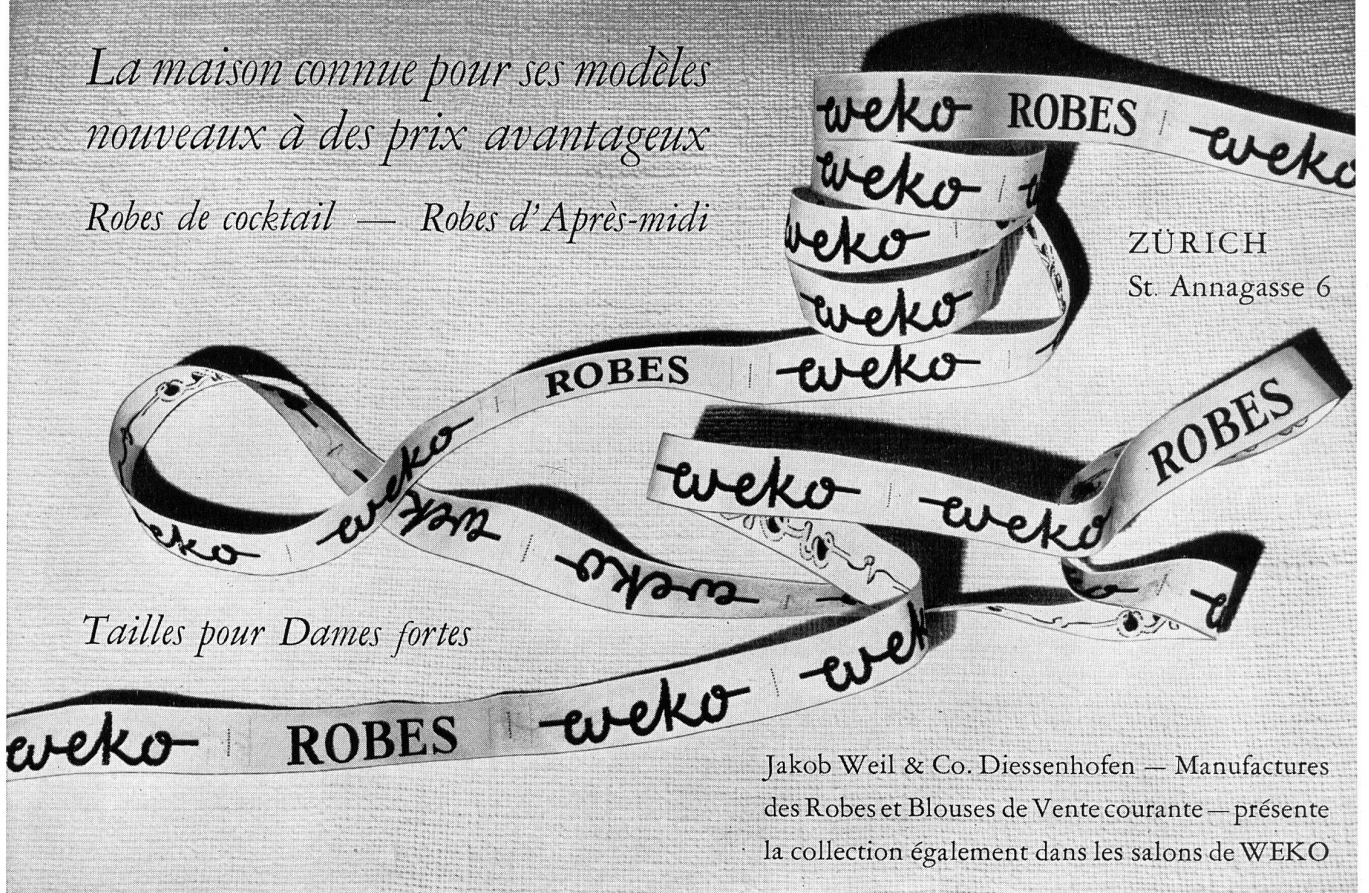 La maison connue pour ses modèles
nouveaux à des prix avantageux
Robes de cocktail — Robes d'Après-midi
weko ROBES weko
weko
weko
weko
ROBES weko
ZÜRICH
St. Annagasse 6
weko
eko
wek
weko
weko
weko weko ROBES
Tailles pour Dames fortes
weko ROBES weko wek
Jakob Weil & Co. Diessenhofen — Manufactures
des Robes et Blouses de Vente courante — présente
la collection également dans les salons de WEKO